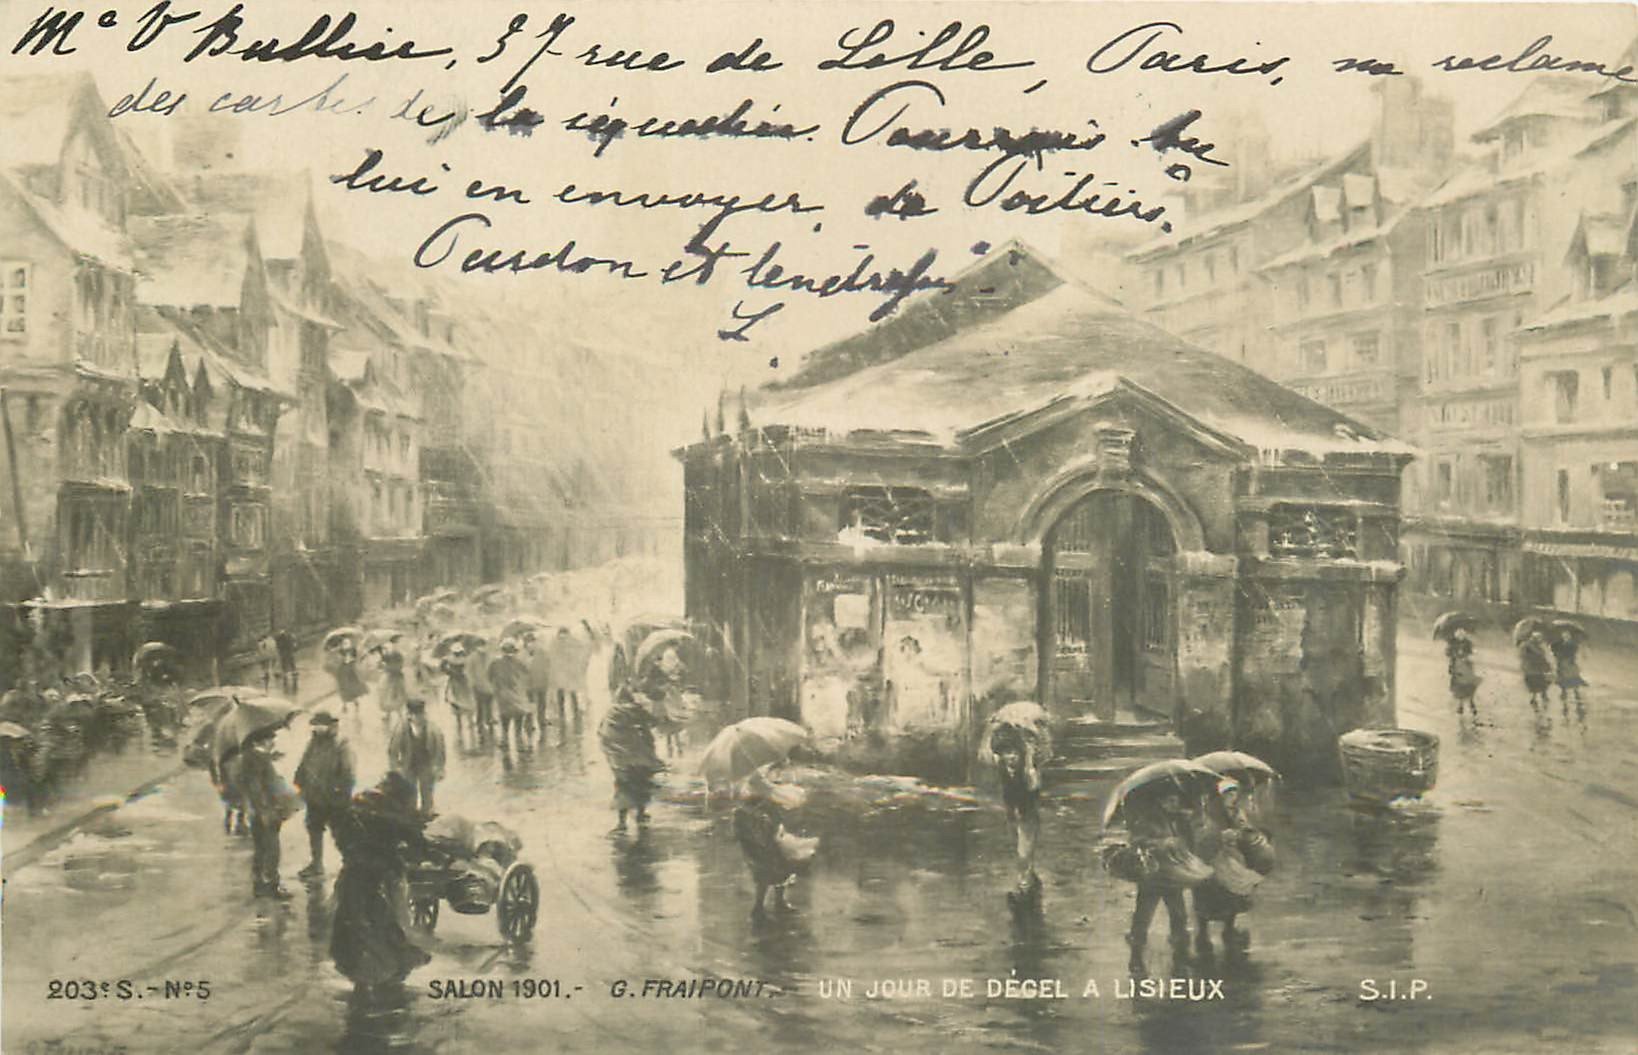 Me V Bullier, 37 rue de Lille, Paris, me reclame
des cartes de la
Pourrais tu
lui en envoyer, de Poitiers,
Pardon et
L.
203e S. - No 5
SALON 1901.- G. FRAIPONT.- UN JOUR DE DÉGEL A LISIEUX
S.I.P.